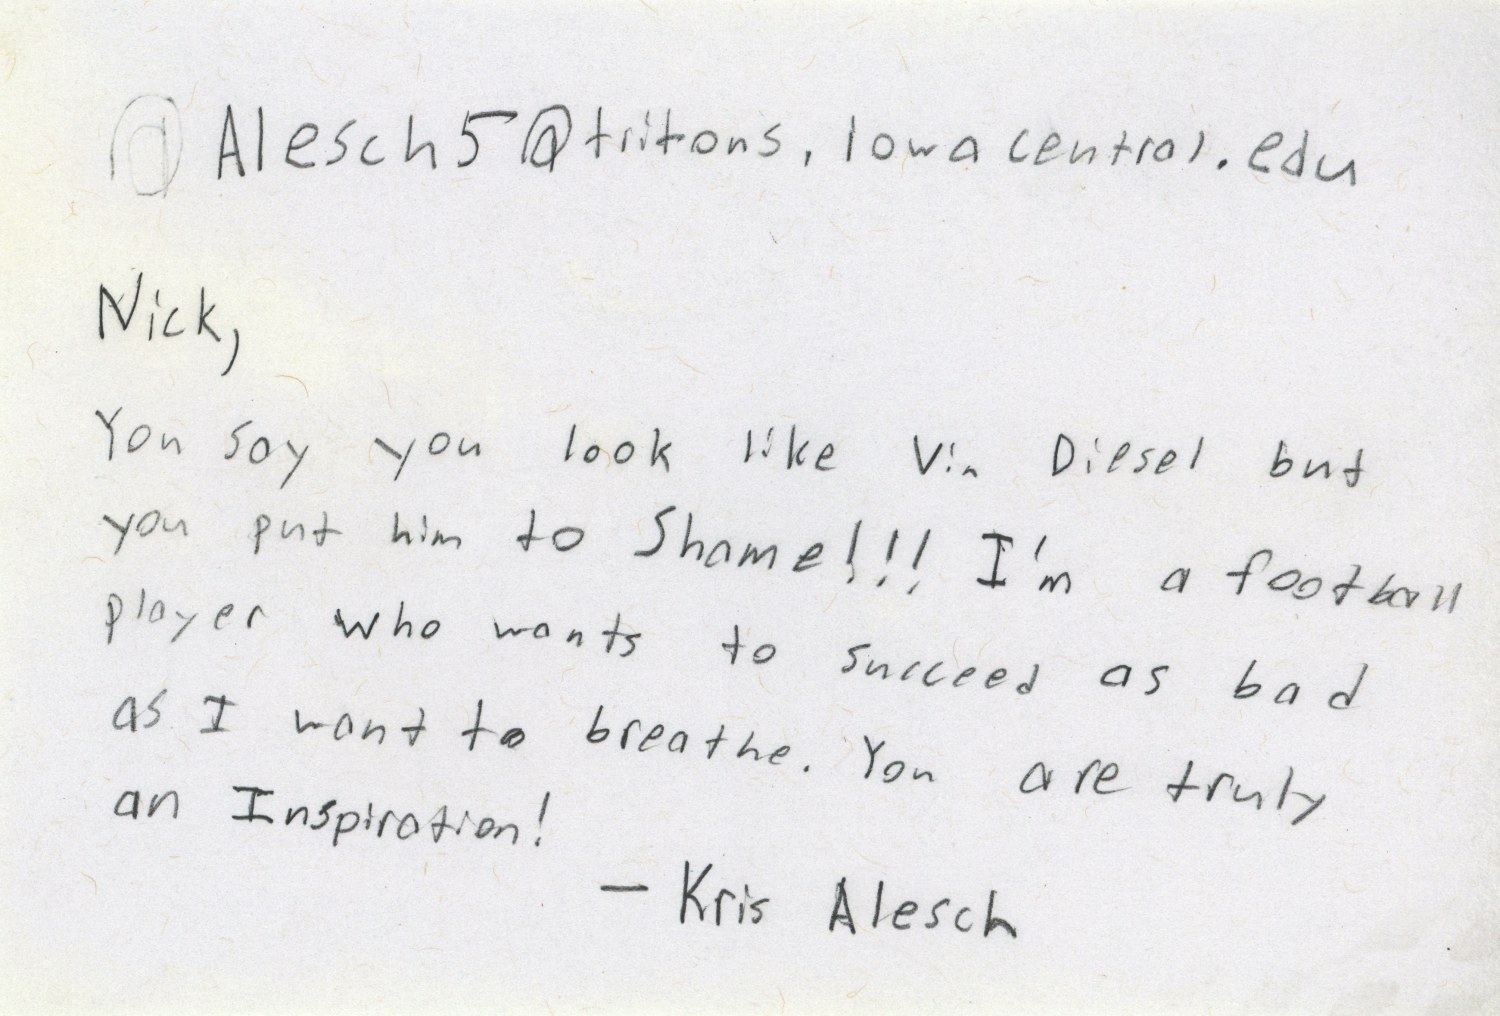 @Alesch5@tritons.Iowacentral.edu
Nick,
You say you look like Vin Diesel but
you put him to Shame!!! I'm a football
player who wants to succeed as bad
as I want to breathe. You are truly
an Inspiration!
- Kris Alesch